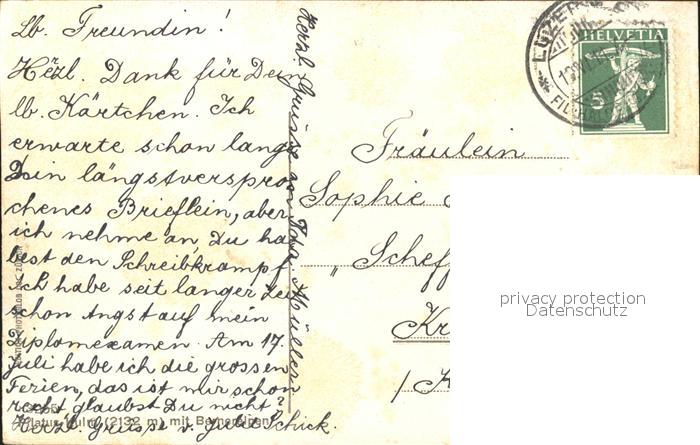 Lb. Freundin!
Herzl. Dank für Dein
lb. Kärtchen. Ich
erwarte schon lange
Dein längstverspro
chenes Brieflein, aber
ich nehme an Du ha
best den Schreibkrampf
ich habe seit langer Zeit
schon Angst auf mein
Diplomexamen. Am 17.
Juli habe ich die grossen
Ferien, das ist mir schon
recht glaubst Du nicht?
Herzl. Grüsse v. Julie Schick.
Pilatus-Kulm (2132 m) mit Berneralpen
Herzl. Grüsse an Fda. Müller
LUZERN
FILIALE
HELVETIA
5
Fräulein
Sophie
"Scheff
Kr
privacy protection
Datenschutz